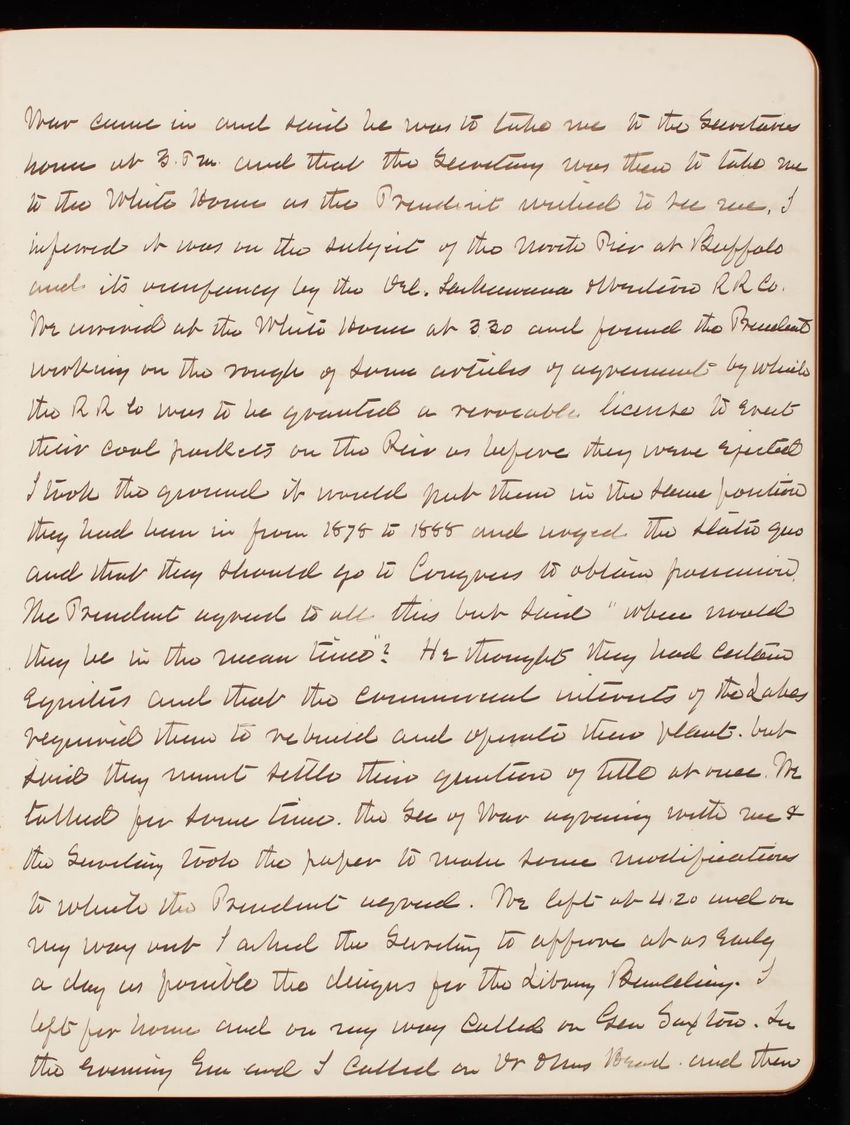 War came in and said he was to take me to the Secretaries
house at 3. P.m. and that the Secretary was then to take me
to the White House as the President wished to see me. I
inferred it was on the subject of the North Pier at Buffalo
and its occupancy by the Del. Lackawana & Western R R Co.
We arrived at the White House at 3.30 and found the President
working on the rough of some articles of agreement by which
the R R Co was to be granted a revocable license to erect
their coal pockets on the Pier as before they were ejected
I took the ground it would put them in the same position
they had been in from 1878 to 1888 and urged the statu quo
and that they should go to Congress to obtain possession.
The President agreed to all this but said "where would
they be in the mean time"? He thought they had certain
Equities and that the commercial interests of the Lakes
required them to rebuild and operate their plant. but
said they must settle their question of title at once. We
talked for some time. the Sec of War agreeing with me &
the Secretary took the paper to make some modifications
to which the President agreed. We left at 4.20 and on
my way out I asked the Secretary to approve at as Early
a day as possible the designs for the Library Building. I
left for home and on my way called on Gen Saxton. In
the Evening Em and I called on Dr & Mrs Bead. and then